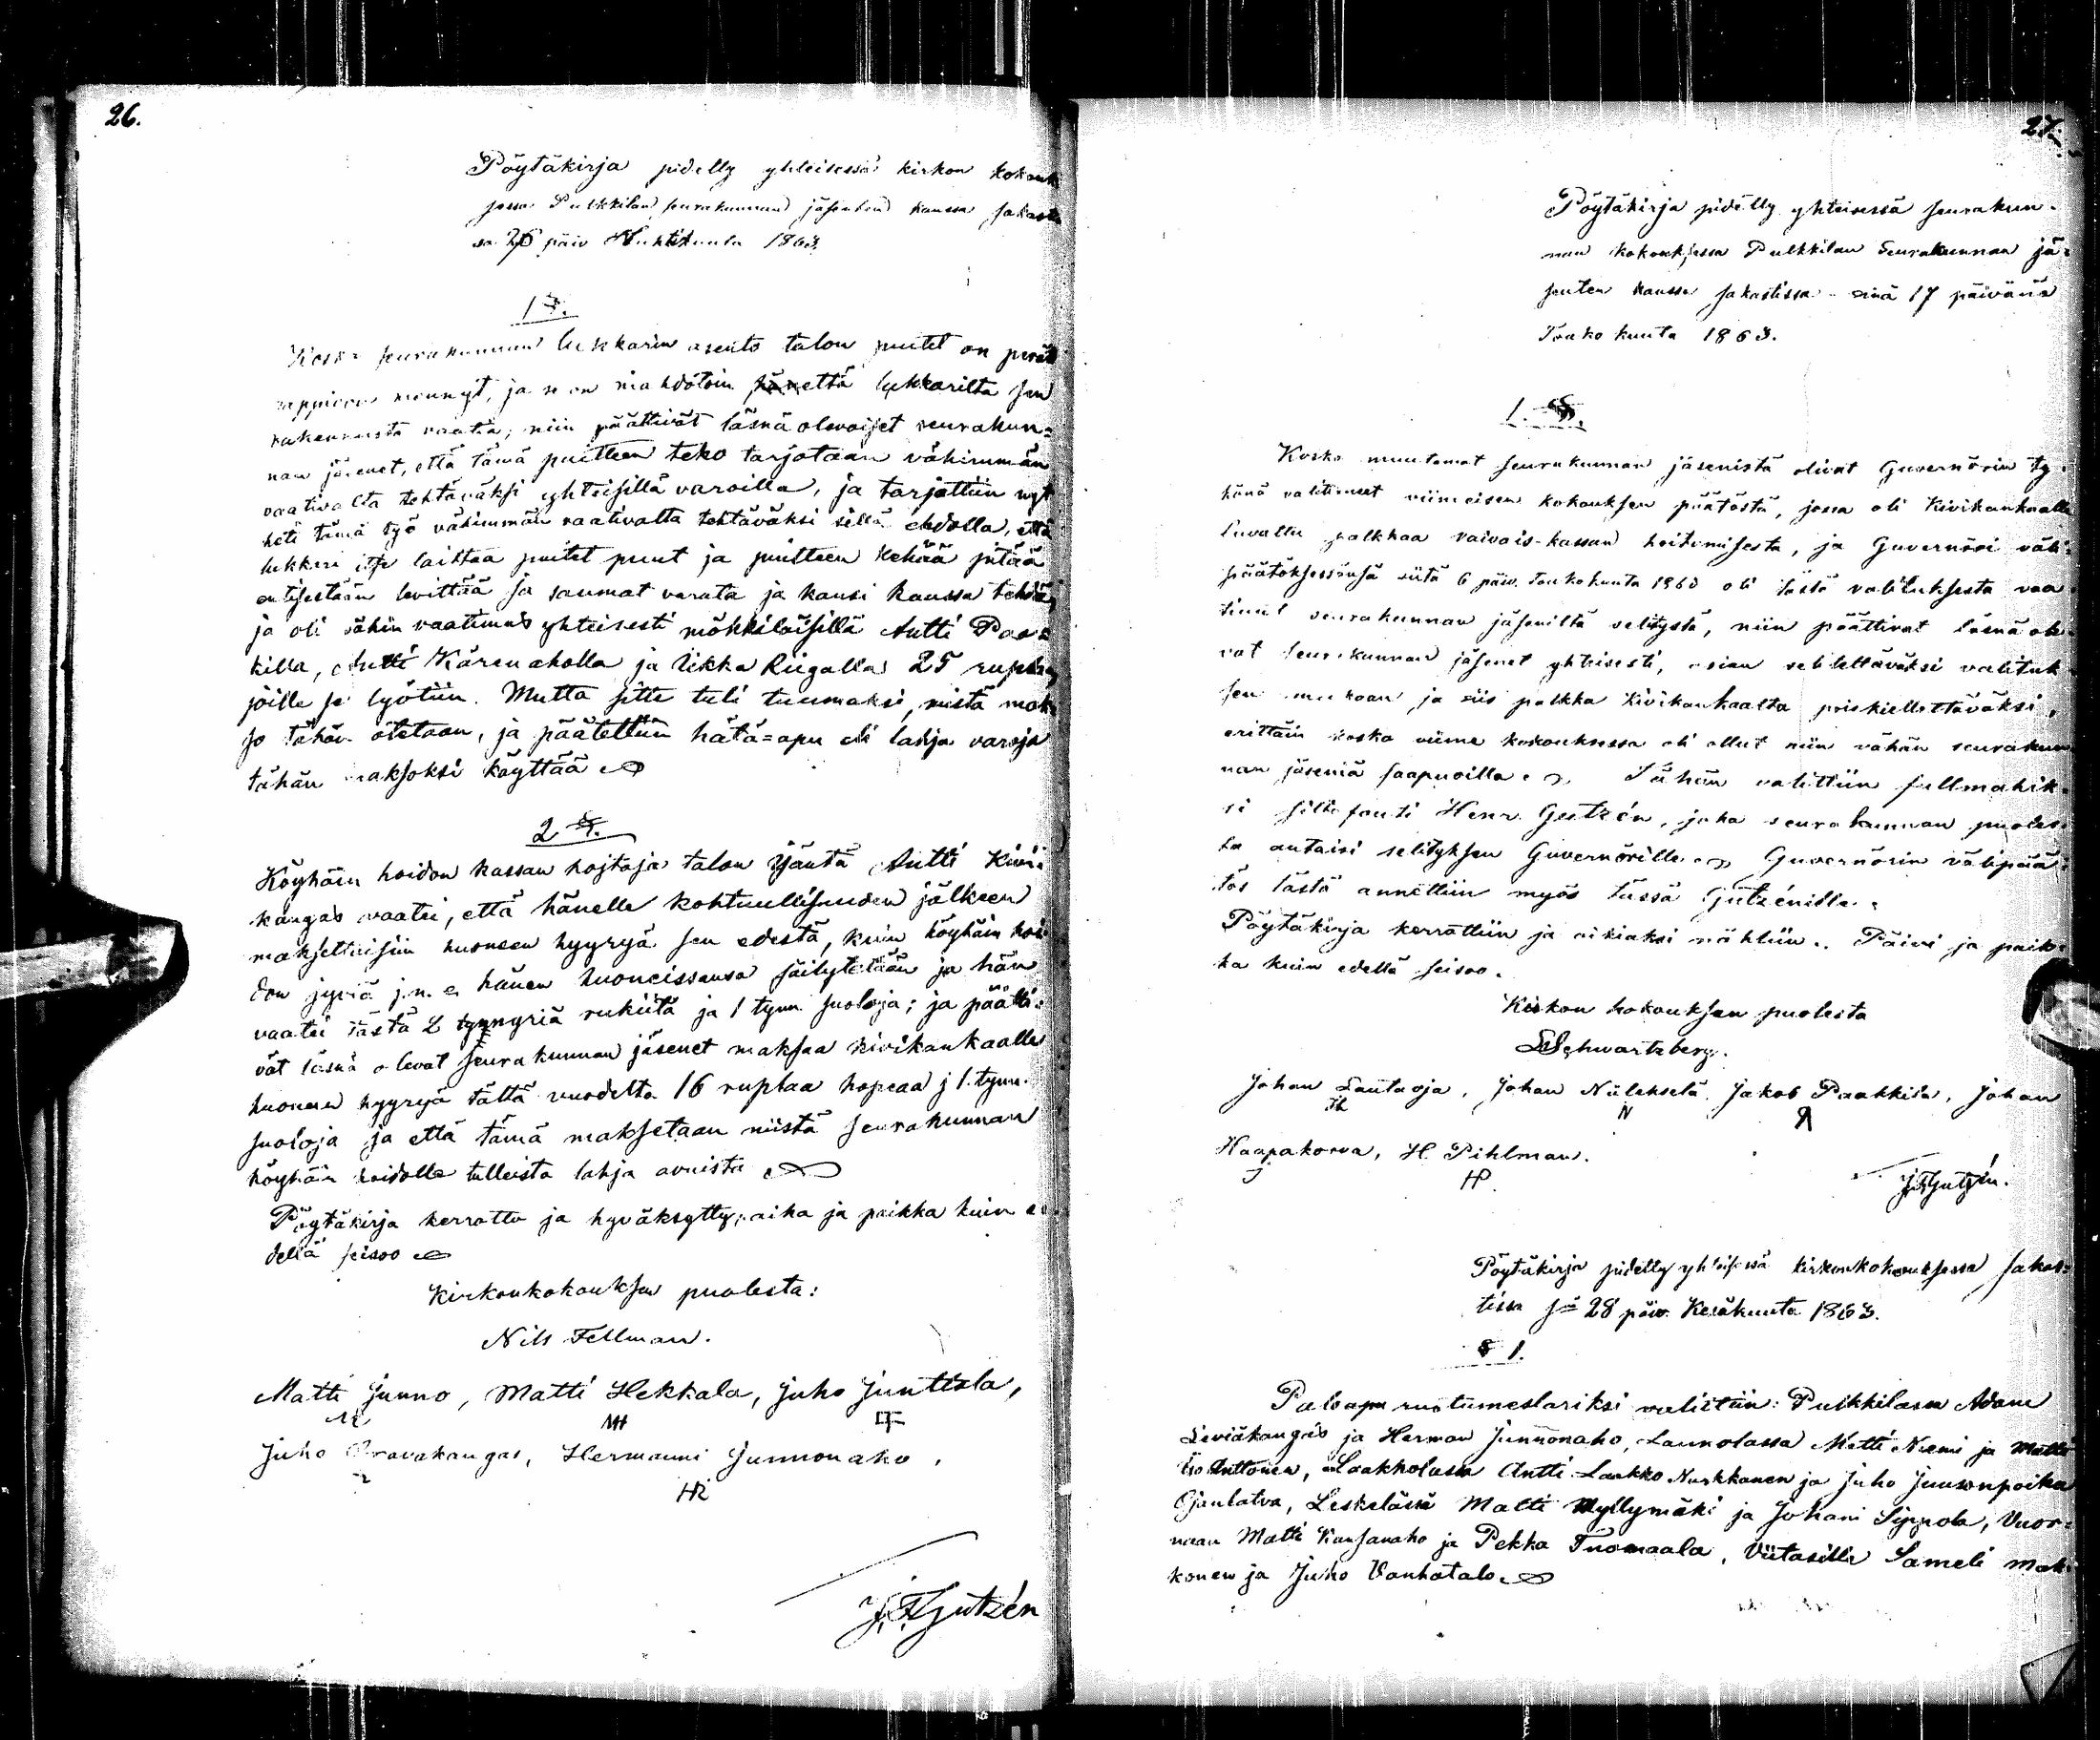 26.
Pöytäkirja pidetty yhteisessä kirkon kokouk
sessa Pulkkilan seurakunnan jäsenten kanssa sakasti
sa 26 päiv Huhtikuuta 1863.
1 §.
Koska seurakunnan lukkarin asento talon puitet on perät
rappioon mennyt, ja se on mahdotoin että lukkarilta sen
rakennusta vaatia; niin päättivät läsnä olevaiset seurakun=
nan jäsenet, että tämä puitteen teko tarjotaan vähimmän
vaativalta tehtäväksi yhteisillä varoilla, ja tarjottiin nyt
heti tämä työ vähimmän vaativalta tehtäväksi sillä ehdolla, että
lukkari itse laittaa puitet puut ja puitteen kehää pitää
entisestään levittää ja saumat varata ja kansi kanssa tehdä,
ja oli vähin vaatimus yhteisesti mökkiläisillä Antti Paak
killa, Antti Kärenaholla ja Iikka Riigalla 25 ruplaa,
joille se lyötiin. Mutta sitte tuli tuumaksi, mistä mak
so tähän otetaan, ja päätettiin hätä=apu eli lahja varoja
tähän maksoksi käyttää
2 §.
Köyhäin hoidon kassan hoitaja talon isäntä Antti Kivi=
kangas vaatei, että hänelle kohtuullisuuden jälkeen
maksettaisiin huoneen hyyryä sen edestä, kuin köyhäin hoi
don jyviä j.n.e. hänen huoneissansa säilytetään ja hän
vaatei tästä 2 tynnyriä rukiita ja 1 tynn suoloja; ja päätti=
vät läsnä olevat seurakunnan jäsenet maksaa Kivikankaalle
huoneen hyyryä tältä vuodelta 16 ruplaa hopeaa j 1. tynn.
suoloja ja että tämä maksetaan niistä seurakunnan
köyhäin hoidolle tulleista lahja avuista
Pöytäkirja kerrottu ja hyväksytty; aika ja paikka kuin e=
dellä seisoo
Kirkonkokouksen puolesta:
Nils Fellman.
Matti Junno, Matti Hekkala, Juho Junttola,
MH
Juho Oravakangas, Hermanni Junnonaho.
J. F. Gutzén
27.
Pöytäkirja pidetty yhteisessä seurakun=
nan kokouksessa Pulkkilan Seurakunnan jä=
senten kanssa sakastissa sinä 17 päivänä
Touko kuuta 1863.
1. §.
Koska muutamat seurakunnan jäsenistä olivat Guvernörin ty=
könä valittaneet viimeisen kokouksen päätöstä, jossa oli Kivikankaalle
luvattu palkkaa vaivais-kassan hoitamisesta, ja Guvernööri väli=
päätöksessänsä siitä 6 päiv. Toukokuuta 1863 oli tästä valituksesta vaa=
tinut seurakunnan jäseniltä selitystä, niin päättivat läsnä ole=
vat seurakunnan jäsenet yhteisesti, asian selitettäväksi valituk=
sen mukaan, ja siis palkka Kivikankaalta poiskiellettäväksi,
erittäin koska viime kokouksessa oli ollut niin vähän seurakun=
nan jäseniä saapuvilla. Tähän valittiin fullmahik=
si Henr. Gutzén, joka seurakunnan puoles=
ta antaisi selityksen Guvernörille. Guvernörin välipää=
tös tästä annettiin myös tässä Gutzénille.
Pöytäkirja kerrottiin ja oikiaksi nähtiin. Päivi ja paik=
ka kuin edellä seisoo.
Kirkon kokouksen puolesta
Schwartzberg.
Johan Lautaoja, Johan Niileksela, Jakob Paakkila, Johan
N
Haapakorva, H Pihlman.
J HP
J. F. Gutzén.
Pöytäkirja pidetty yhteisessä kirkonkokouksessa sakas=
tissa 28 päiv. Kesäkuuta 1863.
§ 1.
Paloapu ruotumestariksi valittiin: Pulkkilassa Adam
Leviäkangas ja Herman Junnonaho, Launolassa Matti Niemi ja Matti
Iso Anttonen, Laakkolassa Antti Laakko Nurkkanen ja Juho Juusonpoika
Ojanlatva, Leskelässä Matti Myllymäki ja Johani Sippola, Vuor=
naan Matti Kansanaho ja Pekka Tuomaala, Viitasille Sameli Mak=
konen ja Juho Vanhatalo.